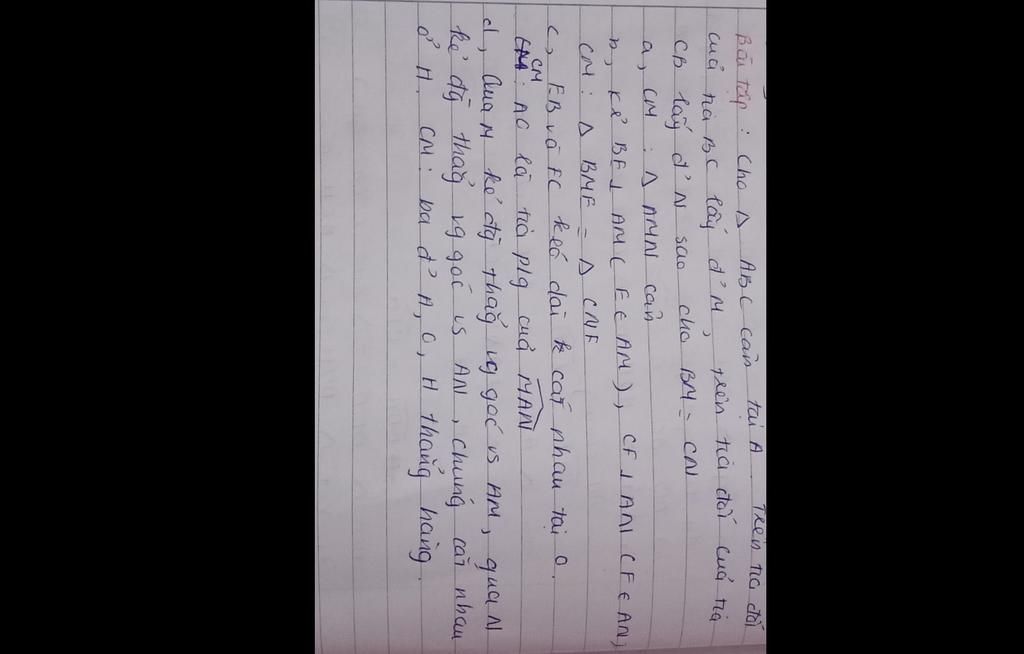 Bài tập : Cho Δ ABC cân tại A. Trên tia đối
của tia BC lấy đ' M, trên tia đối của tia
CB lấy đ' N sao cho BM = CN
a, CM : Δ AMN cân
b, Kẻ BE ⊥ AM ( E ∈ AM ), CF ⊥ AN ( F ∈ AN )
CM : Δ BME = Δ CNF
c, EB và FC kéo dài cắt nhau tại O.
CM : AO là tia p/g của MAN
d, Qua M kẻ đg thẳg vg góc vs AM, qua N
kẻ đg thẳg vg góc vs AN, chúng cắt nhau
ở H. CM : ba đ' A, O, H thẳng hàng.